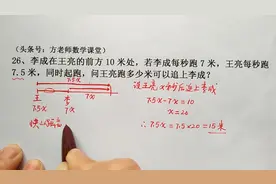 （头条号：方老师数学课堂）
26、李成在王亮的前方 10 米处，若李成每秒跑 7 米，王亮每秒跑
7.5 米，同时起跑，问王亮跑多少米可以追上李成？
7.5x
王 李 7x
7x
设王亮 x 秒后追上李成
7.5x-7x=10
x=20
∴7.5x=7.5×20=15米